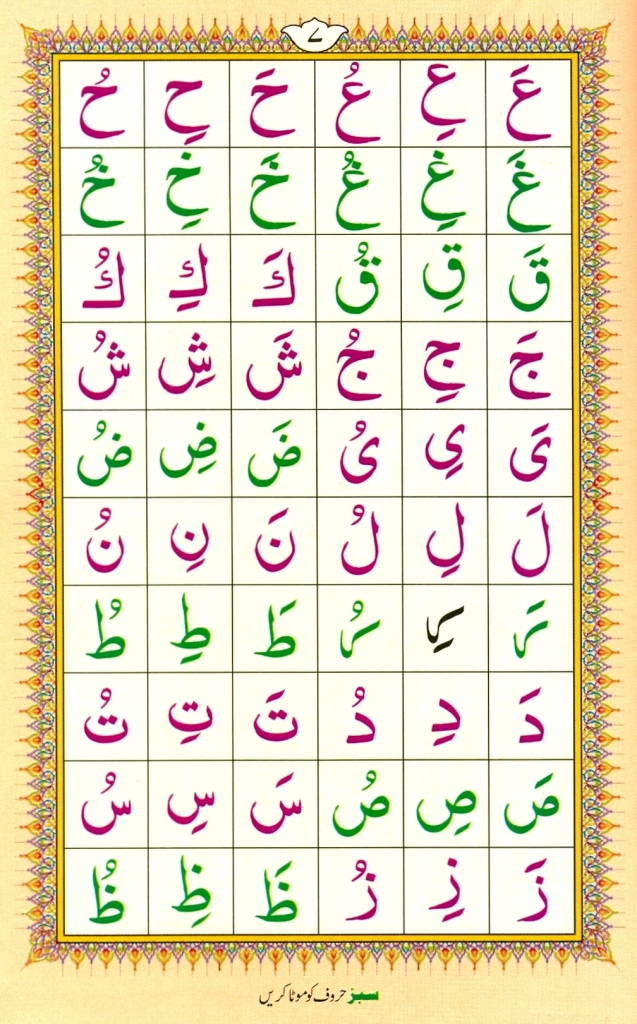 ۷
عَ عِ عُ حَ حِ حُ
غَ غِ غُ خَ خِ خُ
قَ قِ قُ كَ كِ كُ
جَ جِ جُ شَ شِ شُ
ىَ ىِ ىُ ضَ ضِ ضُ
لَ لِ لُ نَ نِ نُ
رَ رِ رُ طَ طِ طُ
دَ دِ دُ تَ تِ تُ
صَ صِ صُ سَ سِ سُ
زَ زِ زُ ظَ ظِ ظُ
سبز حروف کو موٹا کریں